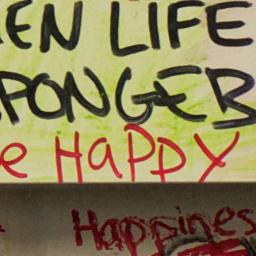 EN LIFE
PONGEB
e HAPPY
Happines